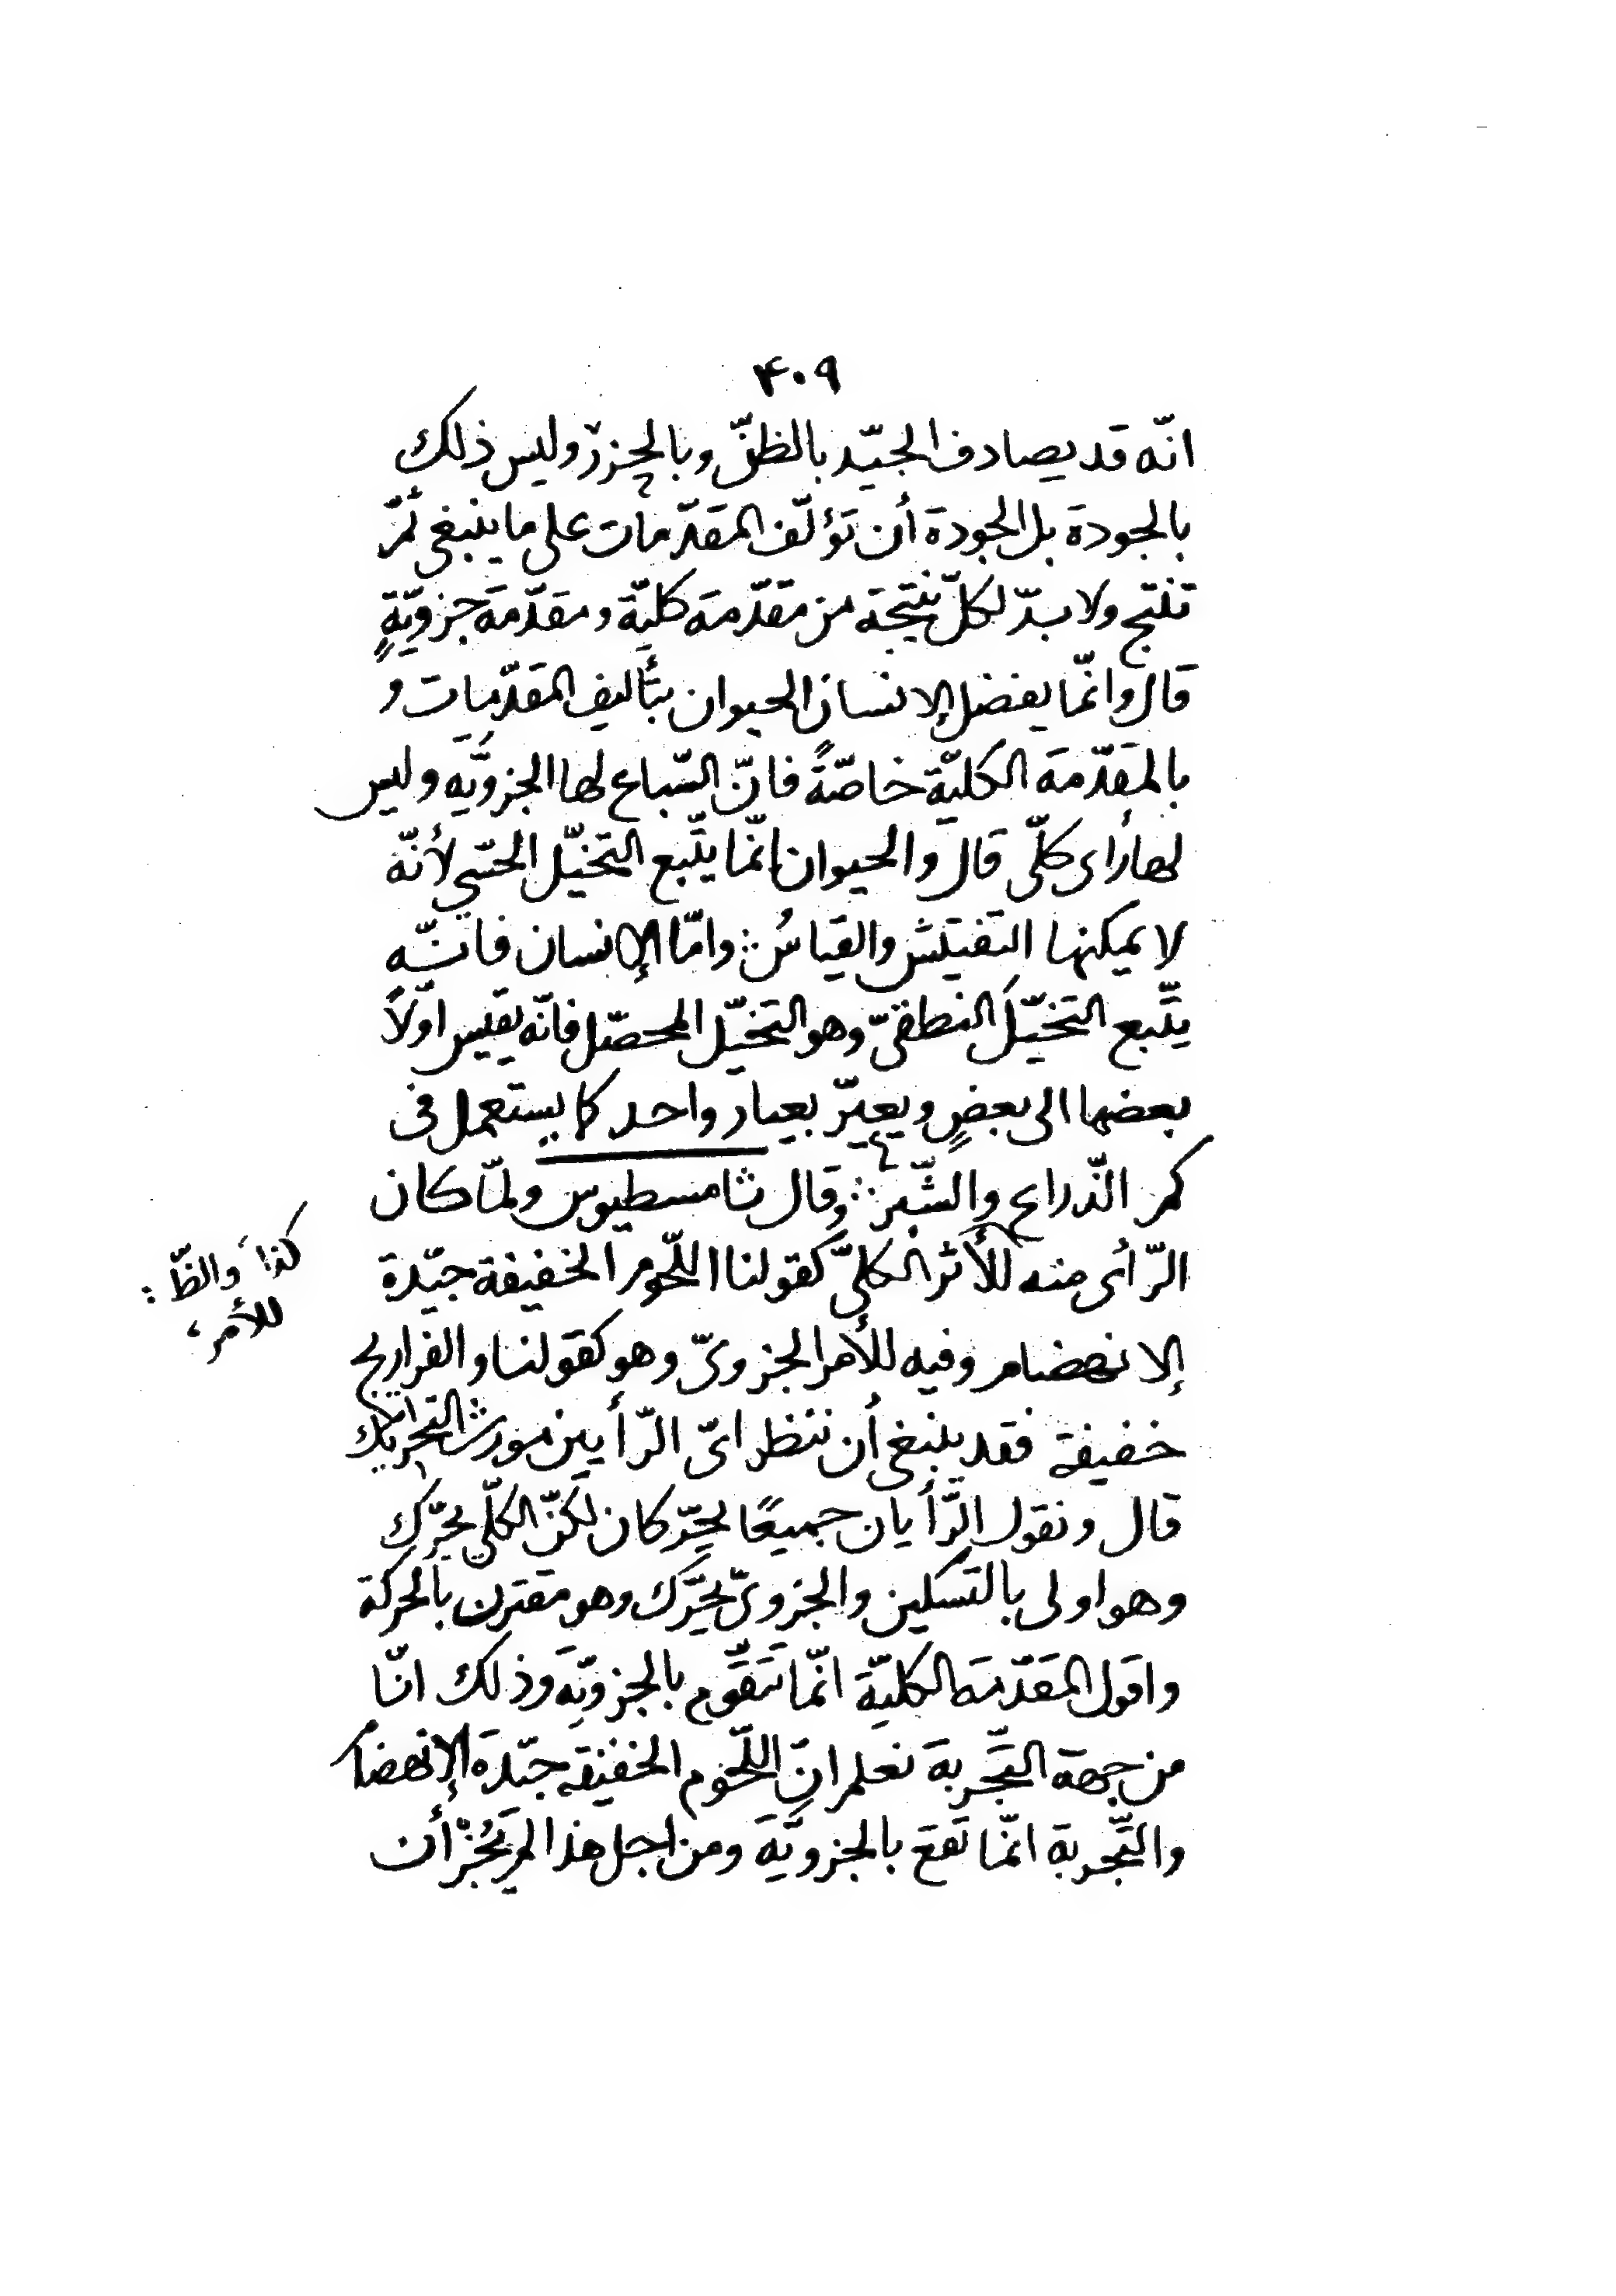 ۴۰۹
انّه قد يصادف الجيّد بالظنّ وبالحزر وليس ذلك
بالجودة بل الجودة أن تؤلّف المقدّمات على ما ينبغى ثمّ
تنتج ولا بدّ لكلّ نتيجة من مقدّمة كليّة ومقدّمة جزويّةٍ
قال وانّما يفضل الإنسان الحيوان بتأليف المقدّمات و
بالمقدّمة الكليّة خاصّةً فانّ السّباع لها الجزويّه وليس
لها رأى كلّى قال والحيوان إنّما يتّبع التخيّل الحسّى لأنّه
لا يمكنها التفتيش والقياسُ ∴ وامّا الإنسان فانّه
يتّبع التخيّل النطقىّ وهو التخيّل المحصّل فانّه يقيس اوّلاً
بعضها الى بعضٍ ويعيّر بعيار واحد كما يستعمل فى
كم الذّراع والشّبر ∴ وقال ثامسطيوس ولمّا كان
الرّأى منه للأثر الكلىّ كقولنا اللّحوم الخفيفة جيّدة
الإنهضام وفيه للأمر الجزوىّ وهو كقولنا والفراريج
خفيفة فقد ينبغى أن ننظر اىّ الرّأيين مورث التحريك
قال ونقول الرّأيان جميعًا يحرّكان لكنّ الكلّى يحرّك
وهو اولى بالتسكين والجزوىّ يحرّك وهو مقترن بالحركة
واقول المقدّمة الكليّة انّما تتقوّم بالجزويّه وذلك انّا
من جهة التّجربة نعلم انّ اللّحوم الخفيفة جيّدة الإنهضام
والتّجربة انّما تقع بالجزويّه ومن اجل هذا لم يَجُزْ أن
كذا، والظّ :
للأمر،